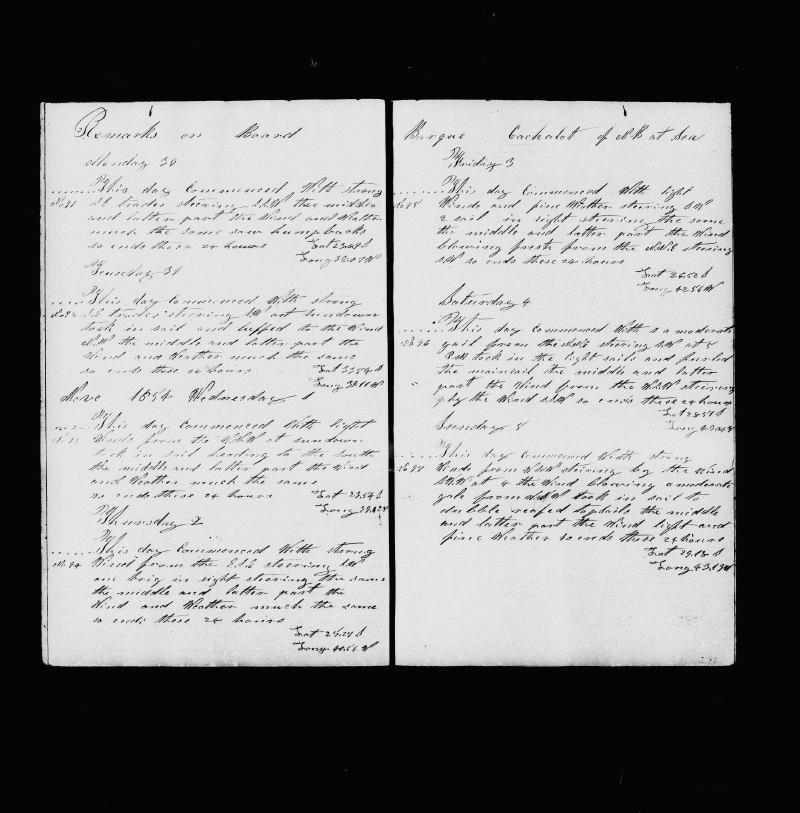 Remarks on Board
Monday 30
This day Commenced With strong
SE trades steering SSW the middle
and latter part the Wind and Wather
much the same saw humpbacks
so ends these 24 hours Lat
Long
Tuesday 31
This day Commenced With strong
trades steering SW at sundown
took in sail and luffed to the Wind
the middle and latter part the
Wind and Weather much the same
so ends these 24 hours Lat
Long
Nove 1854 Wednesday 1
This day Commenced With light
Winds from the at sundown
took in sail heading to the South
the middle and latter part the Wind
and Weather much the same
so ends these 24 hours Lat 23.54 S
Long
Thursday 2
This day Commenced With strong
No 94 Wind from the ESE steering SW
one brig in sight steering the same
the middle and latter part the
Wind and Weather much the same
so ends these 24 hours
Lat 25.27 S
Long 40.51 W
Barque Cachalot of NB at Sea
Friday 3
This day Commenced With light
No 95 Winds and fine Wather steering SW
2 sail in sight steering the same
the middle and latter part the Wind
blowing fresh from the NNE steering
SW so ends these 24 hours
Lat 26.52 S
Long 42.56 W
Saturday 4
This day Commenced With a moderate
No 96 gail from the steering SW at 5
PM took in the light sails and furled
the mainsail the middle and latter
part the Wind from the WSW steering
by the Wind so ends these 24 hours
Lat 28.51 S
Long
Sunday 5
This day Commenced With strong
No 97 Winds from steering by the Wind
at 4 the Wind blowing a moderate
gale from took in sail to
dubble reafed topsails the middle
and latter part the Wind light and
fine Weather so ends these 24 hours
Lat 29.13 S
Long 43.13 W